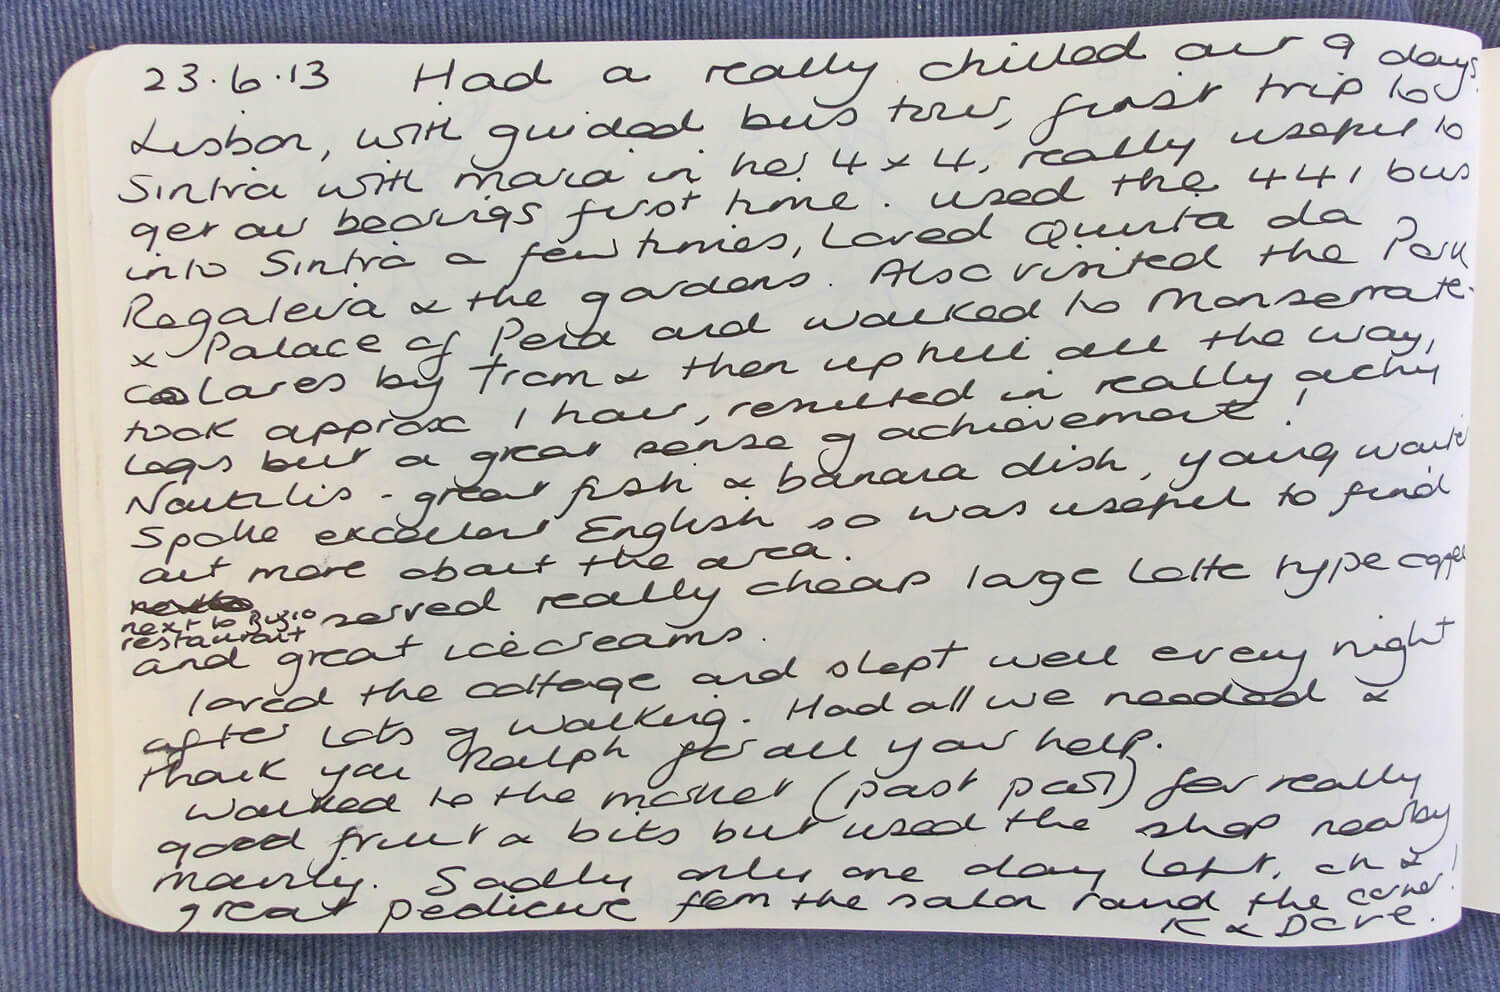 23.6.13 Had a really chilled out 9 days.
Lisbon, with guided bus tour, first trip to
Sintra with Maria in her 4x4, really useful to
get our bearings first time. used the 441 bus
into Sintra a few times, Loved Quinta da
Regaleira & the gardens. Also visited the Park
& Palace of Pena and walked to Monserrate.
Colares by Tram & then up hill all the way,
took approx 1 hour, resulted in really achy
legs but a great sense of achievement!
Nautilis - great fish & banana dish, young waiter
Spoke excellent English so was useful to find
out more about the area.
next to Búzio
restaurant served really cheap large latte type coffee
and great icecreams.
loved the cottage and slept well every night
after lots of walking. Had all we needed &
thank you Ralph for all your help.
Walked to the market (past park) for really
good fruit & bits but used the shop nearby
mainly. Sadly only one day left, oh &
great pedicure from the salon round the corner!
K & Dave.